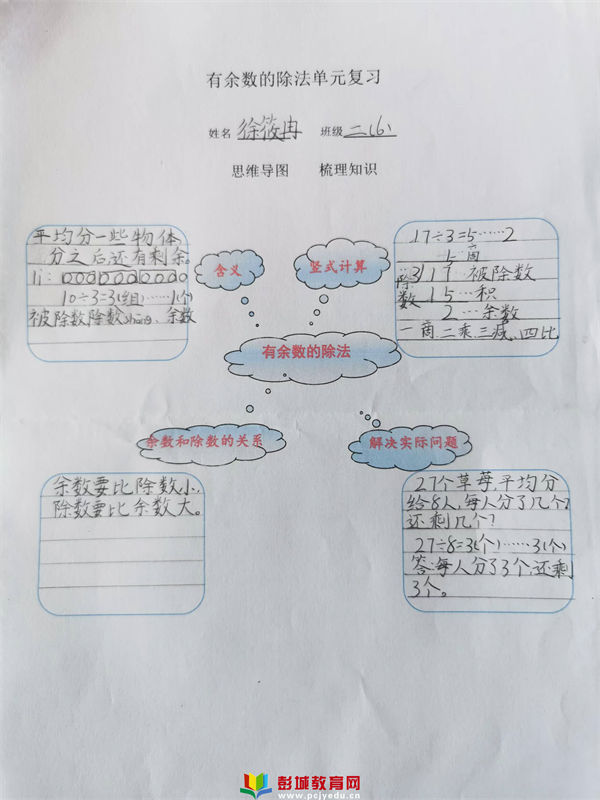 有余数的除法单元复习
姓名 徐筱冉 班级 二(6)
思维导图 梳理知识
平均分一些物体
分之后还有剩余。
li:
10÷3=3(组)……1(个)
被除数除数shāng、余数
含义
竖式计算
17÷3=5……2
5 商
除 3 17 被除数
数 15…积
2…余数
一商二乘三减、四比
有余数的除法
余数和除数的关系
解决实际问题
余数要比除数小,
除数要比余数大。
27个草莓,平均分
给8人,每人分了几个?
还剩几个?
27÷8=3(个)……3(个)
答:每人分了3个,还剩
3个。
彭城教育网
www.pcjyedu.cn